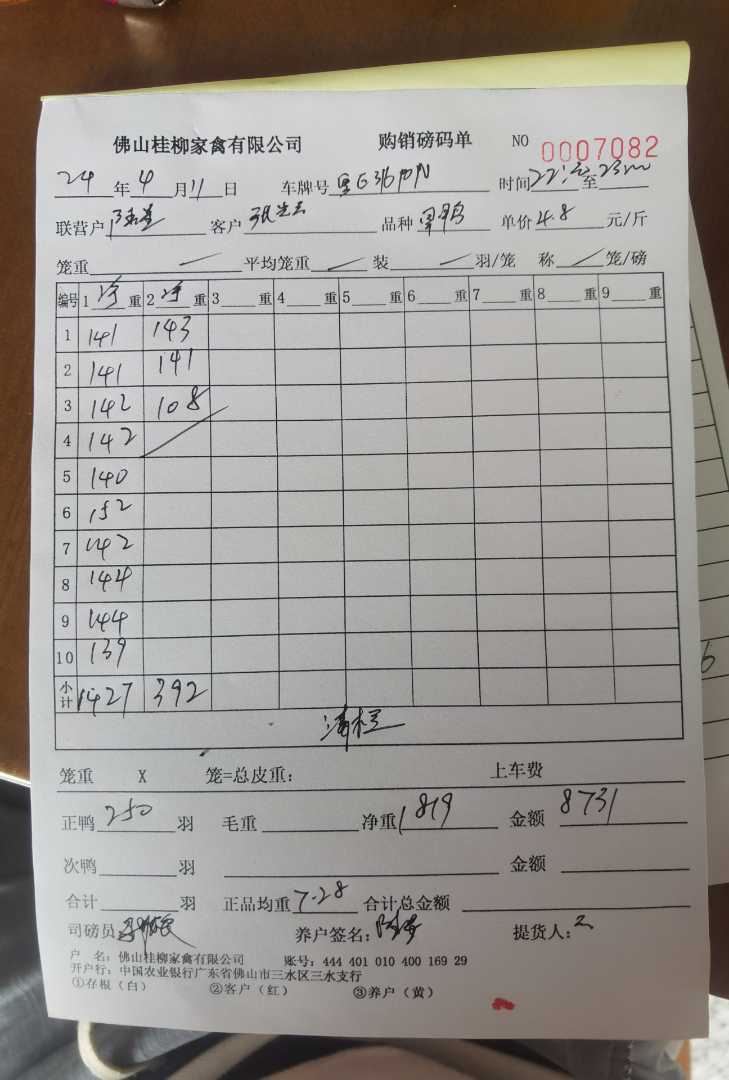 佛山桂柳家禽有限公司 购销磅码单 NO 0007082
24年4月11日 车牌号 时间 至
联营户 客户 品种 单价4.8元/斤
笼重 平均笼重 装 羽/笼 称 笼/磅
编号 1净重 2净重 3重 4重 5重 6重 7重 8重 9重
1 141 143
2 141 141
3 142 108
4 142
5 140
6 152
7 142
8 144
9 144
10 139
小计 1427 392
清栏
笼重 X 笼=总皮重: 上车费
正鸭250羽 毛重 净重1819 金额8731
次鸭 羽 金额
合计 羽 正品均重7.28 合计总金额
司磅员 养户签名: 提货人:
户 名: 佛山桂柳家禽有限公司 账号: 444 401 010 400 169 29
开户行: 中国农业银行广东省佛山市三水区三水支行
①存根(白) ②客户(红) ③养户(黄)